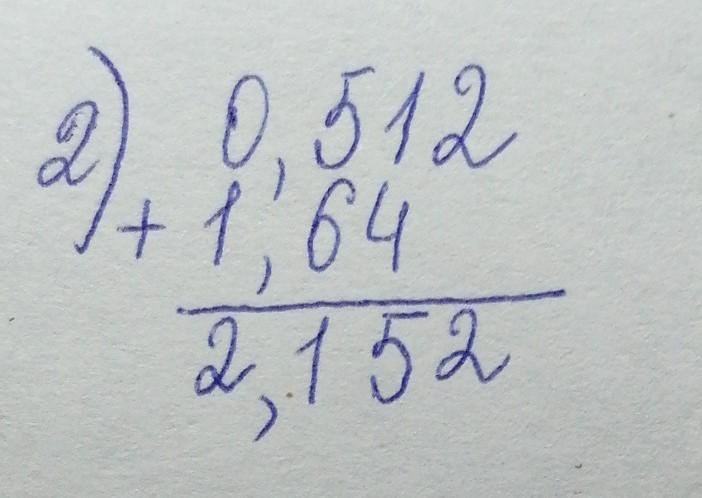 2) 0,512
+ 1,64
2,152